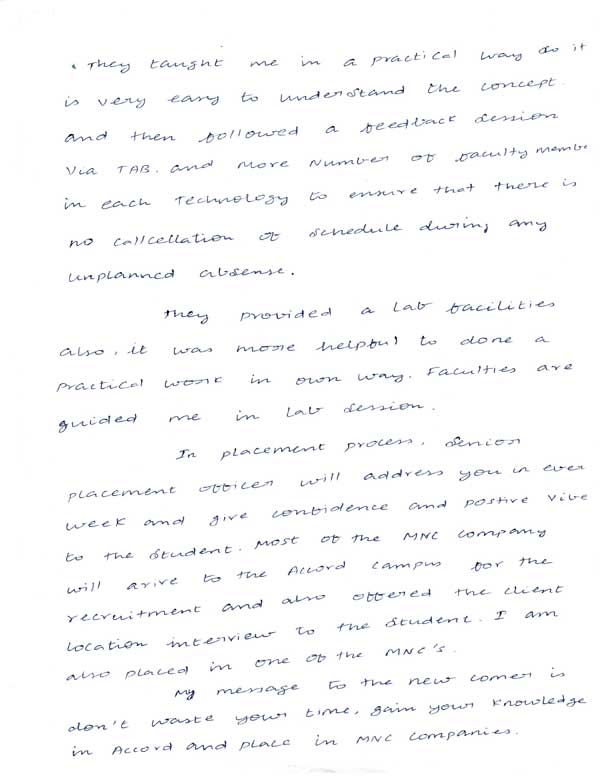 . They taught me in a practical way so it
is very easy to understand the concept.
and then followed a feedback session
Via TAB. and more Number of faculty membe
in each Technology to ensure that there is
no callcellation of schedule during any
unplanned absense.
They provided a lab facilities
also, it was more helpful to done a
practical work in own way. Faculties are
guided me in lab session.
In placement process, senior
placement officer will address you in ever
week and give confidence and postive vibe
to the student. Most of the MNC company
will arive to the Accord campus for the
recruitment and also offered the client
location interview to the student. I am
also placed in one of the MNC's.
My message to the new comer is
don't waste your time, gain your knowledge
in Accord and place in MNC companies.